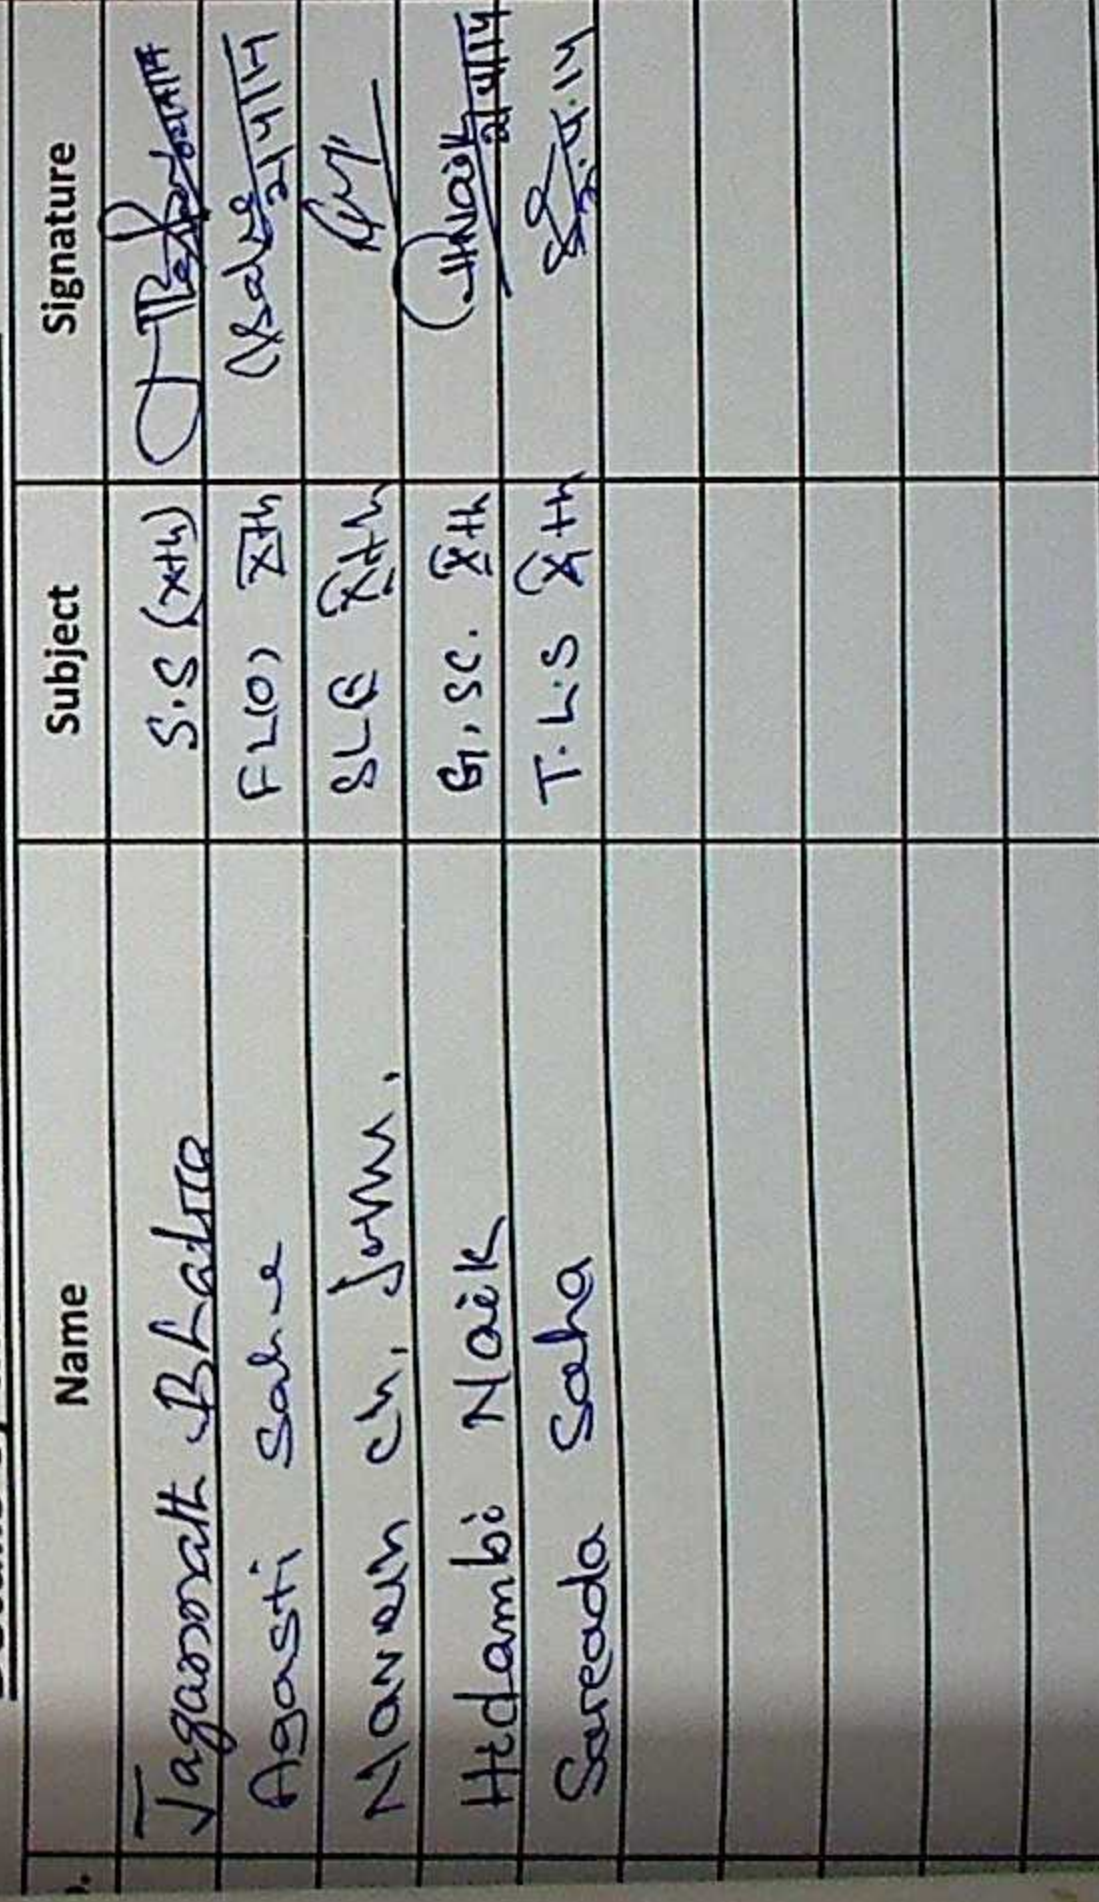 Name Subject Signature
Jagannath Bhatra S.S (xth)
Agasti Sahu FL(O) Xth 2/4/14
Ch. SLE Xth
Hidambi Naik G.SC. Xth Naik 2/4/14
Sareada Saha T.L.S Xth 2.4.14